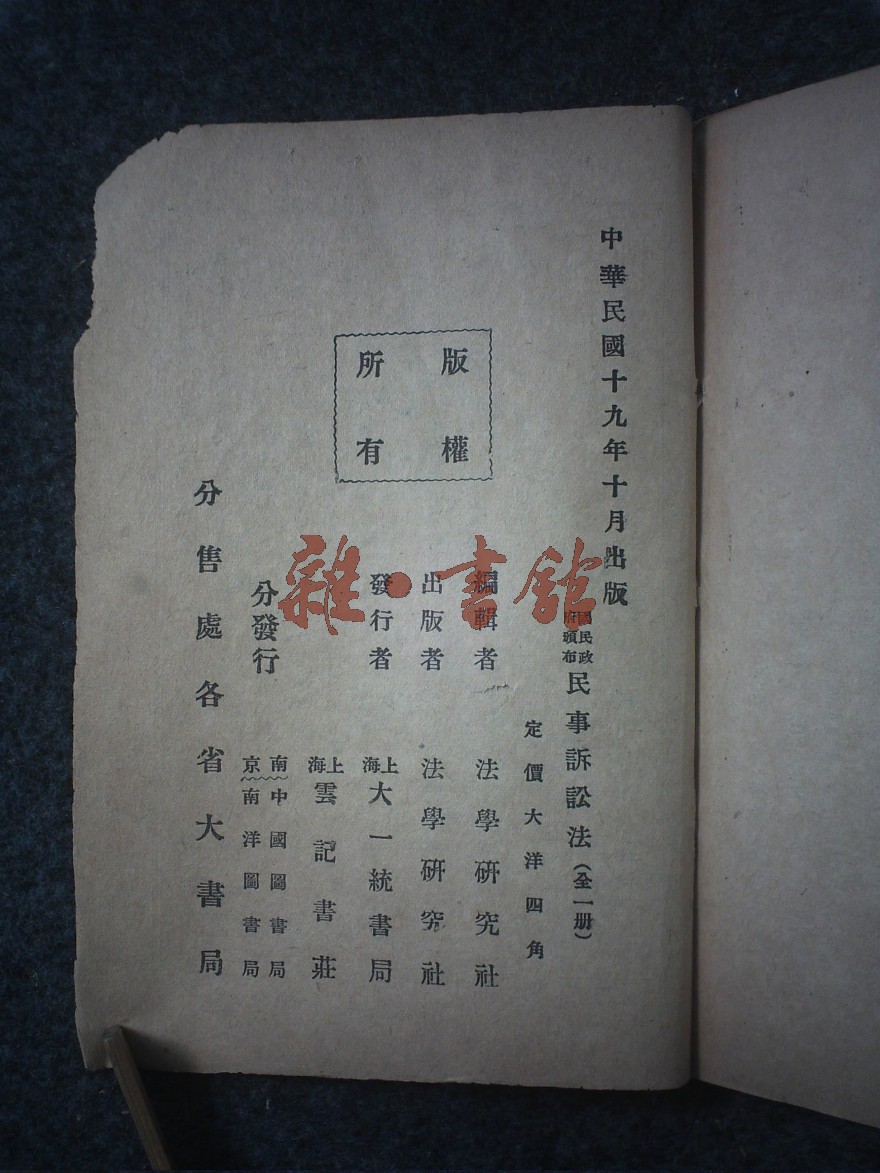 中華民國十九年十月出版
國民政府頒布
民事訴訟法(全一册)
定價大洋四角
版權
所有
編輯者 法學研究社
出版者 法學研究社
發行者 上海 大一統書局
上海 雲記書莊
分發行 南京 中國圖書局
南洋圖書局
分售處各省大書局
雜·書館